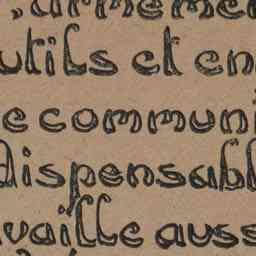 , armemen
utils et en
e communi
dispensabl
availle auss